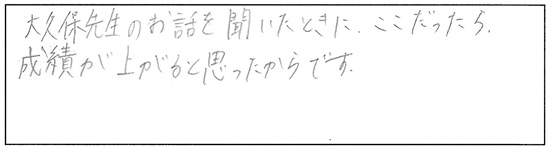 大久保先生のお話を聞いたときに、ここだったら、
成績が上がると思ったからです。